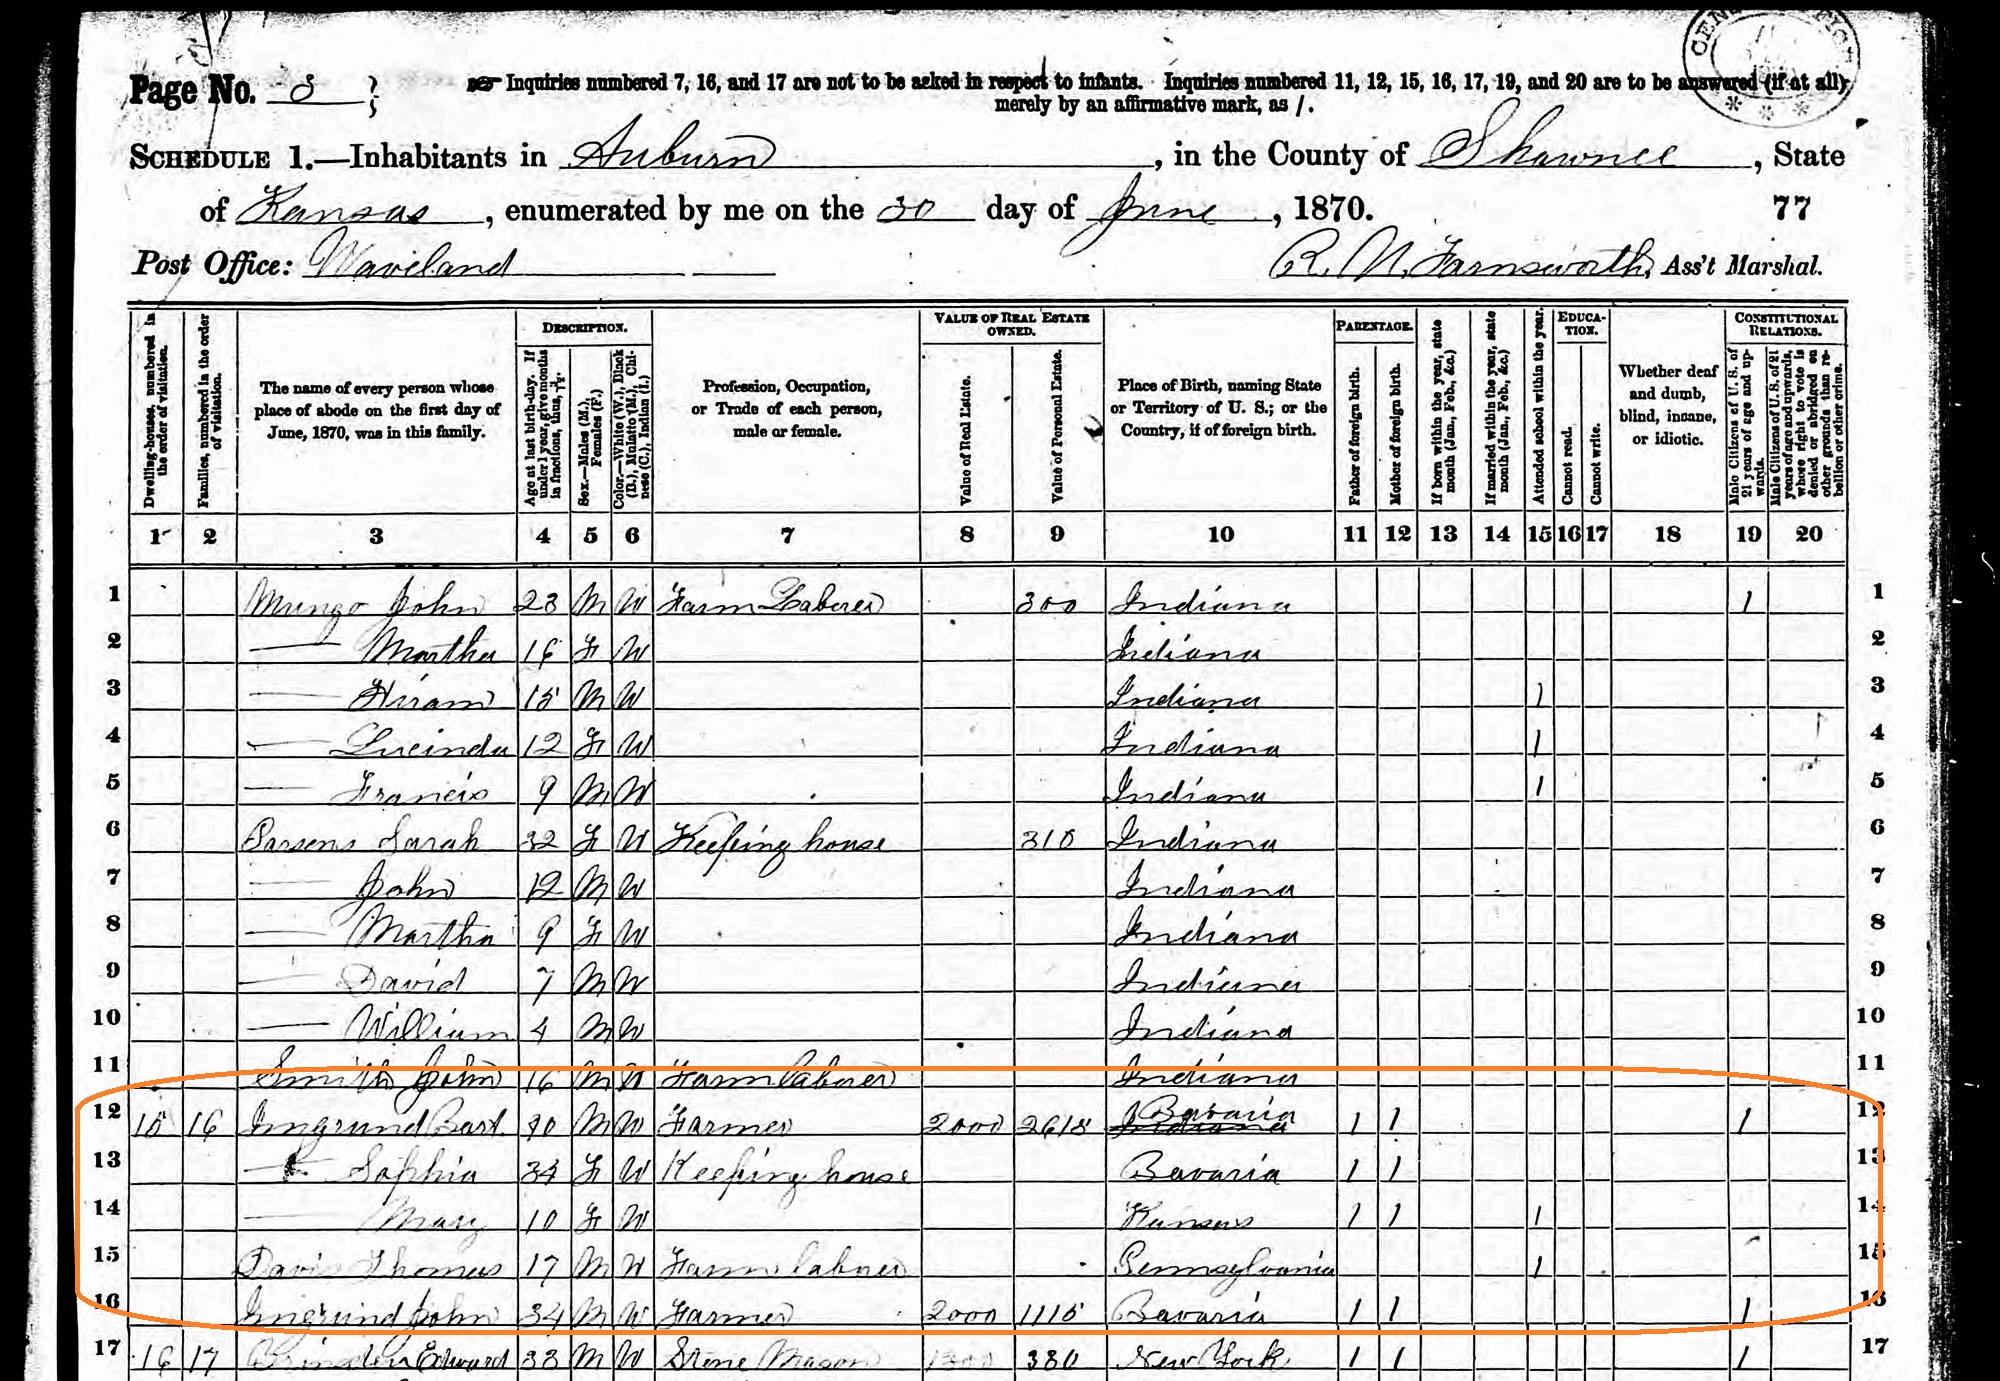 Page No. 8
Inquiries numbered 7, 16, and 17 are not to be asked in respect to infants. Inquiries numbered 11, 12, 15, 16, 17, 19, and 20 are to be answered (if at all)
merely by an affirmative mark, as /.
SCHEDULE 1.—Inhabitants in Auburn, in the County of Shawnee, State
of Kansas, enumerated by me on the 30 day of June, 1870. 77
Post Office: Waveland R. N. Farnsworth, Ass't Marshal.
DESCRIPTION. VALUE OF REAL ESTATE OWNED. PARENTAGE. EDUCATION. CONSTITUTIONAL RELATIONS.
Dwelling-houses, numbered in the order of visitation.
Families, numbered in the order of visitation.
The name of every person whose place of abode on the first day of June, 1870, was in this family.
Age at last birth-day. If under 1 year, give months in fractions, thus,
Sex.—Males (M.), Females (F.)
Color.—White (W.), Black (B.), Mulatto (M.), Chinese (C.), Indian (I.)
Profession, Occupation, or Trade of each person, male or female.
Value of Real Estate.
Value of Personal Estate.
Place of Birth, naming State or Territory of U. S.; or the Country, if of foreign birth.
Father of foreign birth.
Mother of foreign birth.
If born within the year, state month (Jan., Feb., &c.)
If married within the year, state month (Jan., Feb., &c.)
Attended school within the year.
Cannot read.
Cannot write.
Whether deaf and dumb, blind, insane, or idiotic.
Male Citizens of U. S. of 21 years of age and upwards.
Male Citizens of U. S. of 21 years of age and upwards, whose right to vote is denied or abridged on other grounds than rebellion or other crime.
1 2 3 4 5 6 7 8 9 10 11 12 13 14 15 16 17 18 19 20
1 Mungo John 23 M W Farm Laborer 300 Indiana 1 1
2 — Martha 16 F W Indiana 2
3 — Hiram 15 M W Indiana 1 3
4 — Lucinda 12 F W Indiana 1 4
5 — Francis 9 M W Indiana 1 5
6 Parsens Sarah 32 F W Keeping house 310 Indiana 6
7 — John 12 M W Indiana 7
8 — Martha 9 F W Indiana 8
9 — David 7 M W Indiana 9
10 — William 4 M W Indiana 10
11 Smith John 16 M W Farm laborer Indiana 11
12 15 16 Imgrund Bart. 40 M W Farmer 2000 2615 Bavaria Indiana 1 1 1 12
13 — Sophia 34 F W Keeping house Bavaria 1 1 13
14 — Mary 10 F W Kansas 1 1 1 14
15 Davis Thomas 17 M W Farm laborer Pennsylvania 1 15
16 Imgrund John 34 M W Farmer 2000 1115 Bavaria 1 1 1 16
17 16 17 Edward 33 M W Stone Mason 380 New York 1 1 1 17